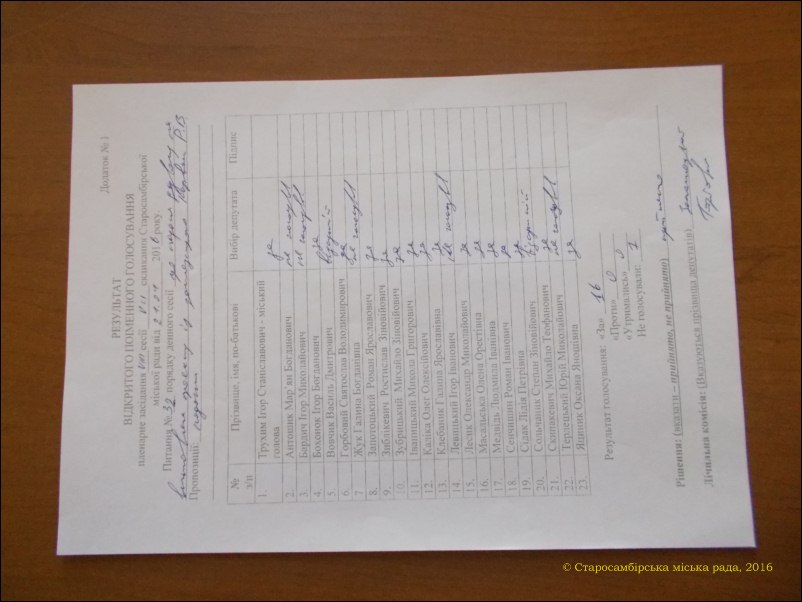 Додаток № 1
РЕЗУЛЬТАТ
ВІДКРИТОГО ПОІМЕННОГО ГОЛОСУВАННЯ
пленарне засідання VIII сесії VII скликання Старосамбірської
міської ради від 21.07 2016 року.
Питання № 39 порядку денного сесії
Пропозиції:
№ з/п Прізвище, імя, по-батькові Вибір депутата Підпис
1. Трухим Ігор Станіславович - міський голова за
2. Антошик Мар'ян Богданович не голосував
3. Бардич Ігор Миколайович не голосував
4. Бохонок Ігор Богданович за
5. Вовчик Василь Дмитрович відсутній
6. Горбовий Святослав Володимирович за
7 Жук Галина Богданівна не голосув
8. Запотоцький Роман Ярославович за
9. Зиблікевич Ростислав Зіновійович за
10. Зубрицький Михайло Зіновійович за
11. Іваницький Микола Григорович за
12. Каліка Олег Олексійович за
13. Клебаник Галина Ярославівна за
14. Левицький Ігор Іванович не голосув
15. Лесик Олександр Миколайович за
16. Масальська Олена Орестівна за
17. Медвідь Людмила Іванівна за
18. Сенчишин Роман Іванович за
19. Сідак Лідія Петрівна за
20. Сольчаник Степан Зіновійович відсутній
21. Скипакевич Михайло Теофанович за
22. Терлецький Юрій Миколайович не голосув
23. Яцишин Оксана Яношівна за
Результат голосування: «За» 16
«Проти» 0
«Утримались» 0
Не голосували: 1
Рішення: (вказати – прийнято, не прийнято) прийнято
Лічильна комісія: (Вказуються прізвища депутатів)
© Старосамбірська міська рада, 2016